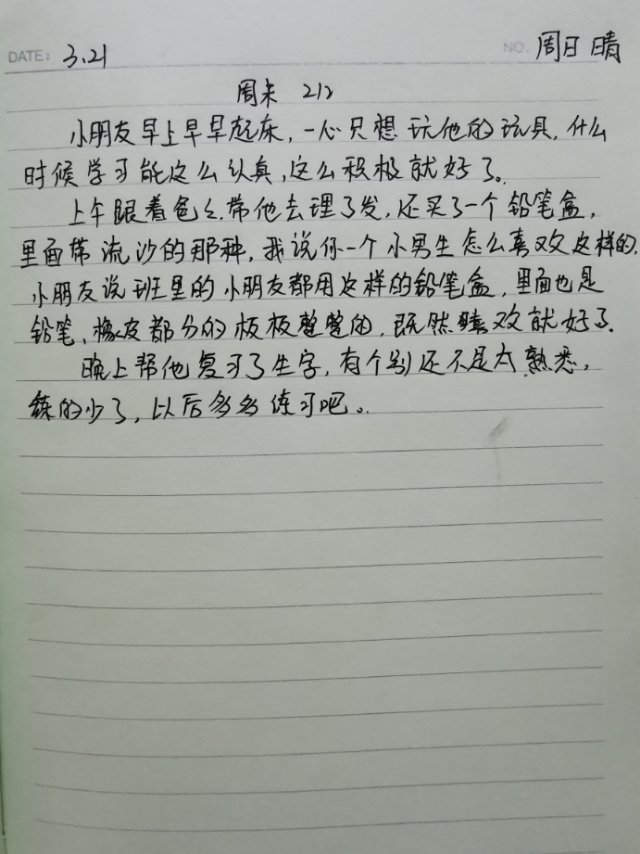 DATE: 3.21 NO. 周日 晴
周末 212
小朋友早上早早起床，一心只想玩他的玩具，什么
时候学习能这么认真，这么积极就好了。
上午跟着爸爸带他去理了发，还买了一个铅笔盒，
里面带流沙的那种，我说你一个小男生怎么喜欢这样的，
小朋友说班里的小朋友都用这样的铅笔盒，里面也是
铅笔、橡皮都分的板板整整的，既然喜欢就好了。
晚上帮他复习了生字，有个别还不是太熟悉，
练的少了，以后多多练习吧。